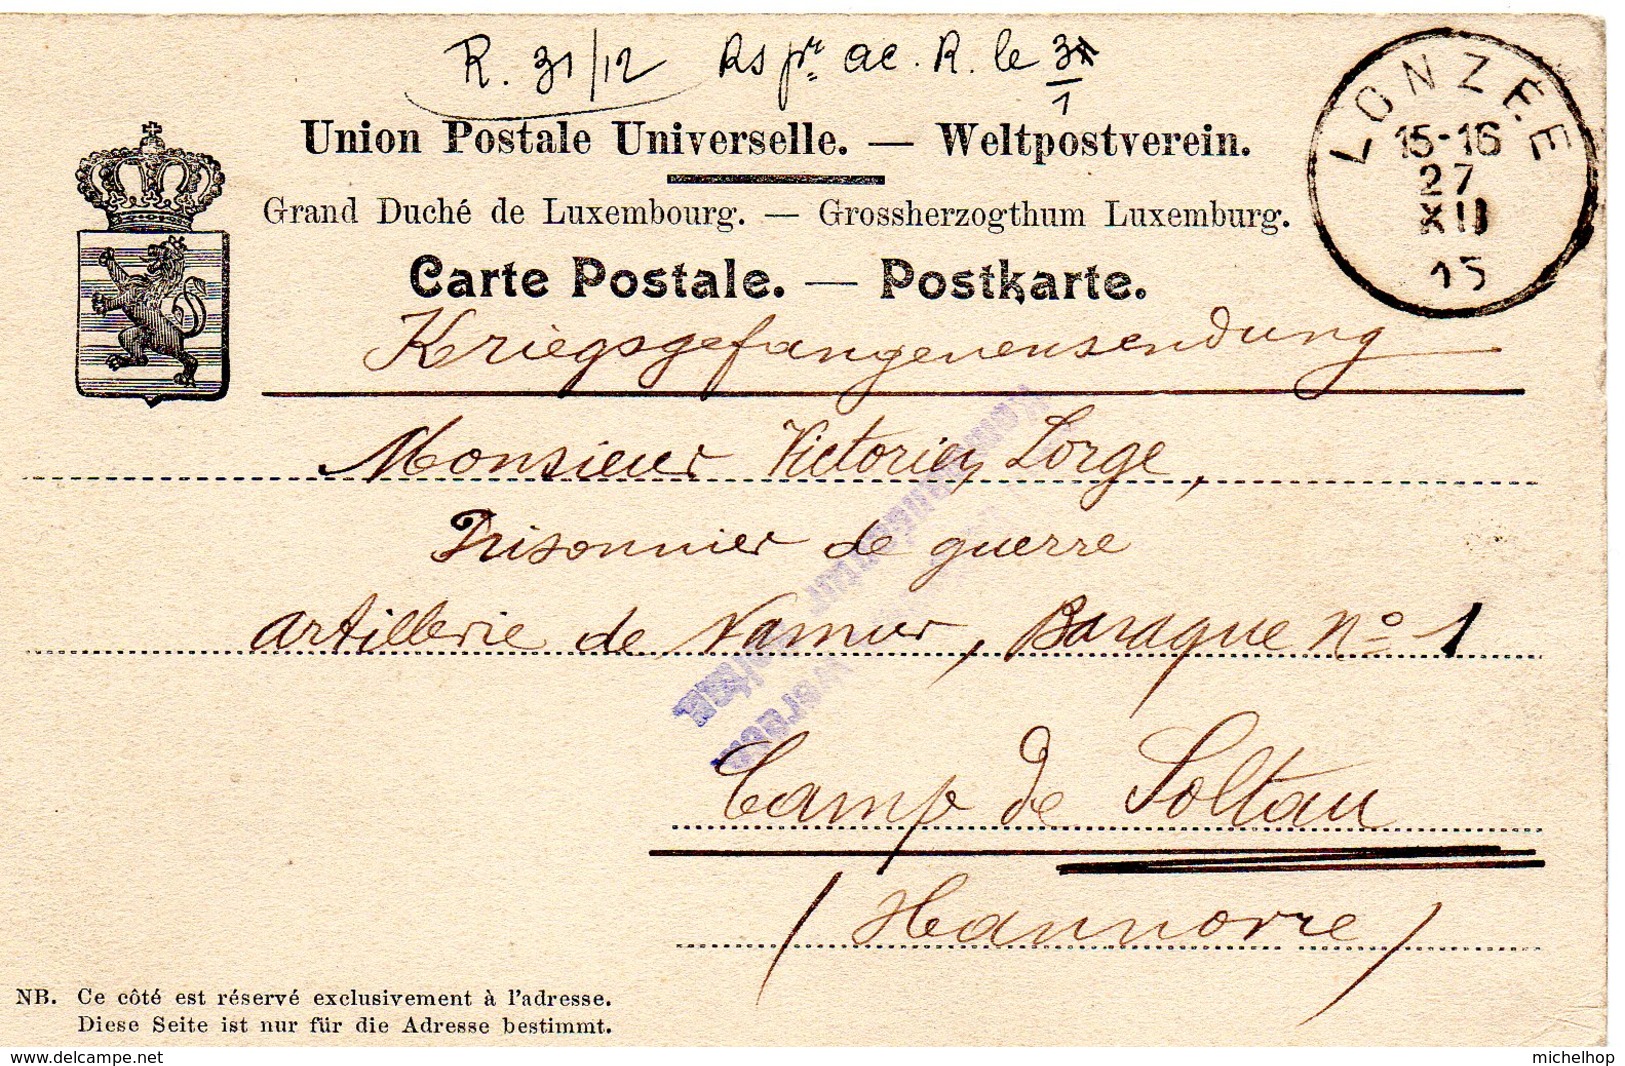 R. 31/12 Rs pr ac. R. le 31/1
LONZÉE
15-16
27
XII
15
Union Postale Universelle. — Weltpostverein.
Grand Duché de Luxembourg. — Grossherzogthum Luxemburg.
Carte Postale. — Postkarte.
Kriegsgefangenensendung
Monsieur Victorien Lorge,
Prisonnier de guerre
Artillerie de Namur, Baraque No 1
Camp de Soltau
(Hannovre)
NB. Ce côté est réservé exclusivement à l'adresse.
Diese Seite ist nur für die Adresse bestimmt.
www.delcampe.net
michelhop